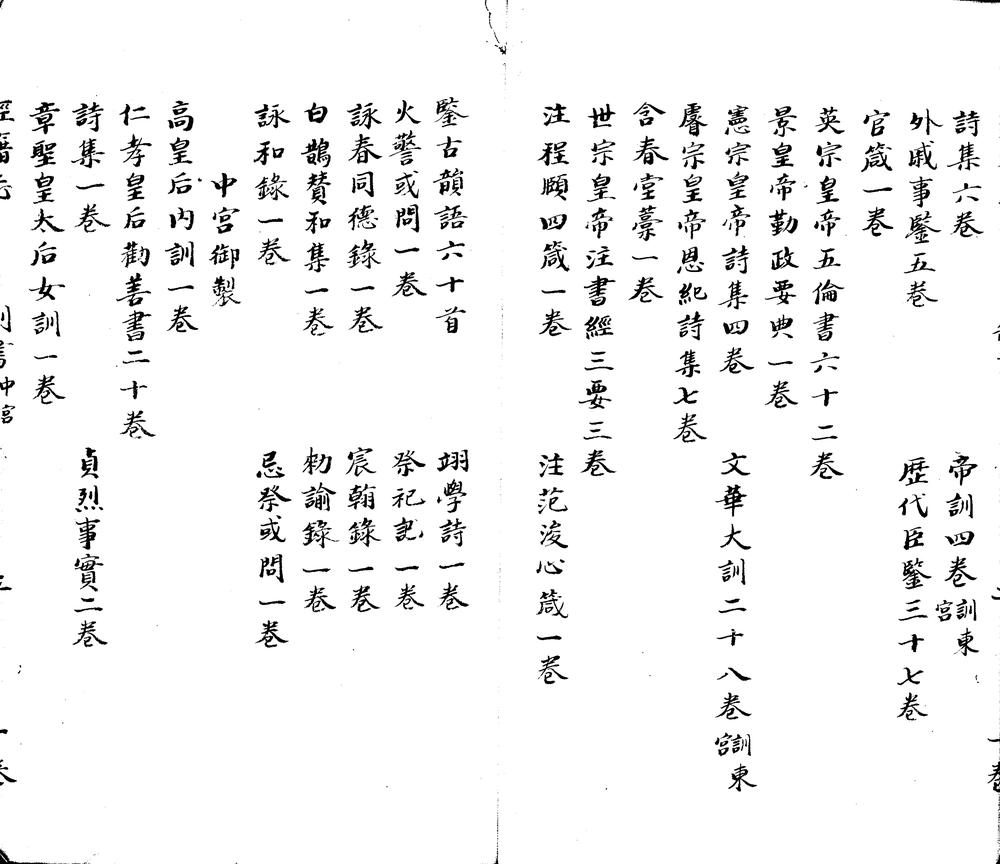 詩集六卷 帝訓四卷訓東宮
外戚事鑒五卷 歷代臣鑒三十七卷
官箴一卷
英宗皇帝五倫書六十二卷
景皇帝勤政要典一卷
憲宗皇帝詩集四卷 文華大訓二十八卷訓東宮
睿宗皇帝恩紀詩集七卷
含春堂藁一卷
世宗皇帝注書經三要三卷
注程頤四箴一卷 注范浚心箴一卷
鑒古韻語六十首 翊學詩一卷
火警或問一卷 祭祀記一卷
詠春同德錄一卷 宸翰錄一卷
白鵲賛和集一卷 勑諭錄一卷
詠和錄一卷 忌祭或問一卷
中宮御製
高皇后內訓一卷
仁孝皇后勸善書二十卷
詩集一卷 貞烈事實二卷
章聖皇太后女訓一卷